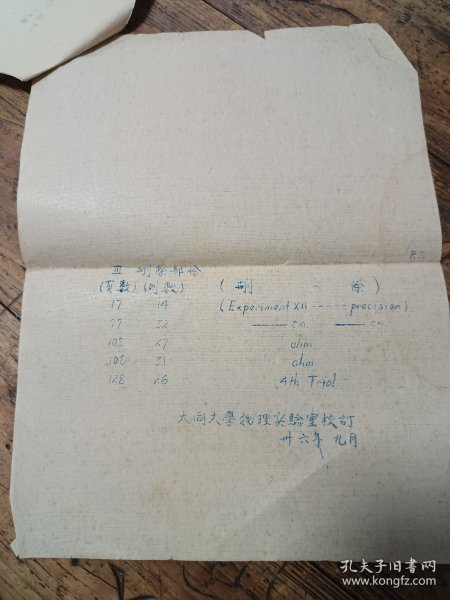 P.3
III 刪除部份
(頁數) (行數) (刪 — 除)
17 14 (Experiment XII ----- precision)
77 32 —— cm. —— cm.
103 27 ohm
103 31 ohm
123 29 4th Trial
大同大學物理實驗室校訂
卅六年九月
孔夫子旧书网
www.kongfz.com